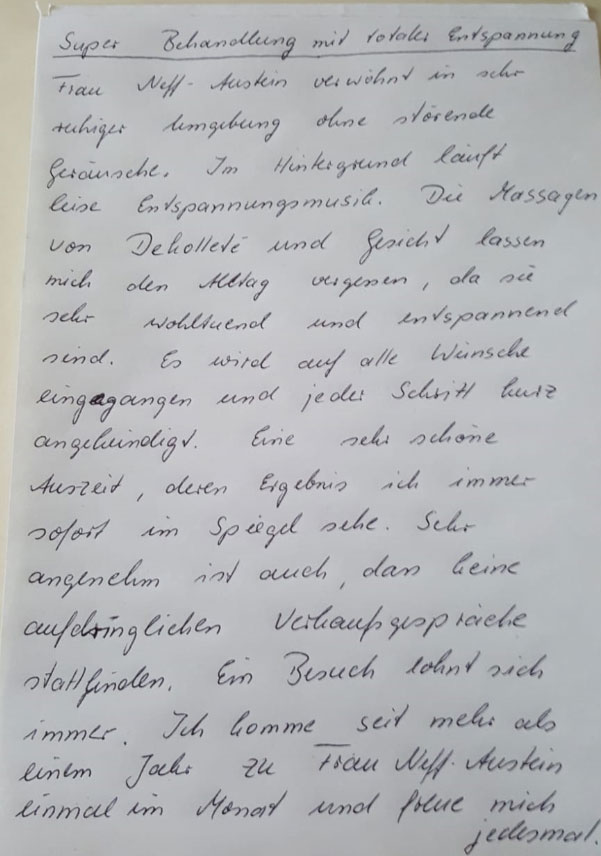 Super Behandlung mit totaler Entspannung
Frau Neff-Austein verwöhnt in sehr
ruhiger Umgebung ohne störende
Geräusche. Im Hintergrund läuft
leise Entspannungsmusik. Die Massagen
von Dekolleté und Gesicht lassen
mich den Alltag vergessen, da sie
sehr wohltuend und entspannend
sind. Es wird auf alle Wünsche
eingegangen und jeder Schritt kurz
angekündigt. Eine sehr schöne
Auszeit, deren Ergebnis ich immer
sofort im Spiegel sehe. Sehr
angenehm ist auch, dass keine
aufdringlichen Verkaufsgespräche
stattfinden. Ein Besuch lohnt sich
immer. Ich komme seit mehr als
einem Jahr zu Frau Neff-Austein
einmal im Monat und freue mich
jedesmal.